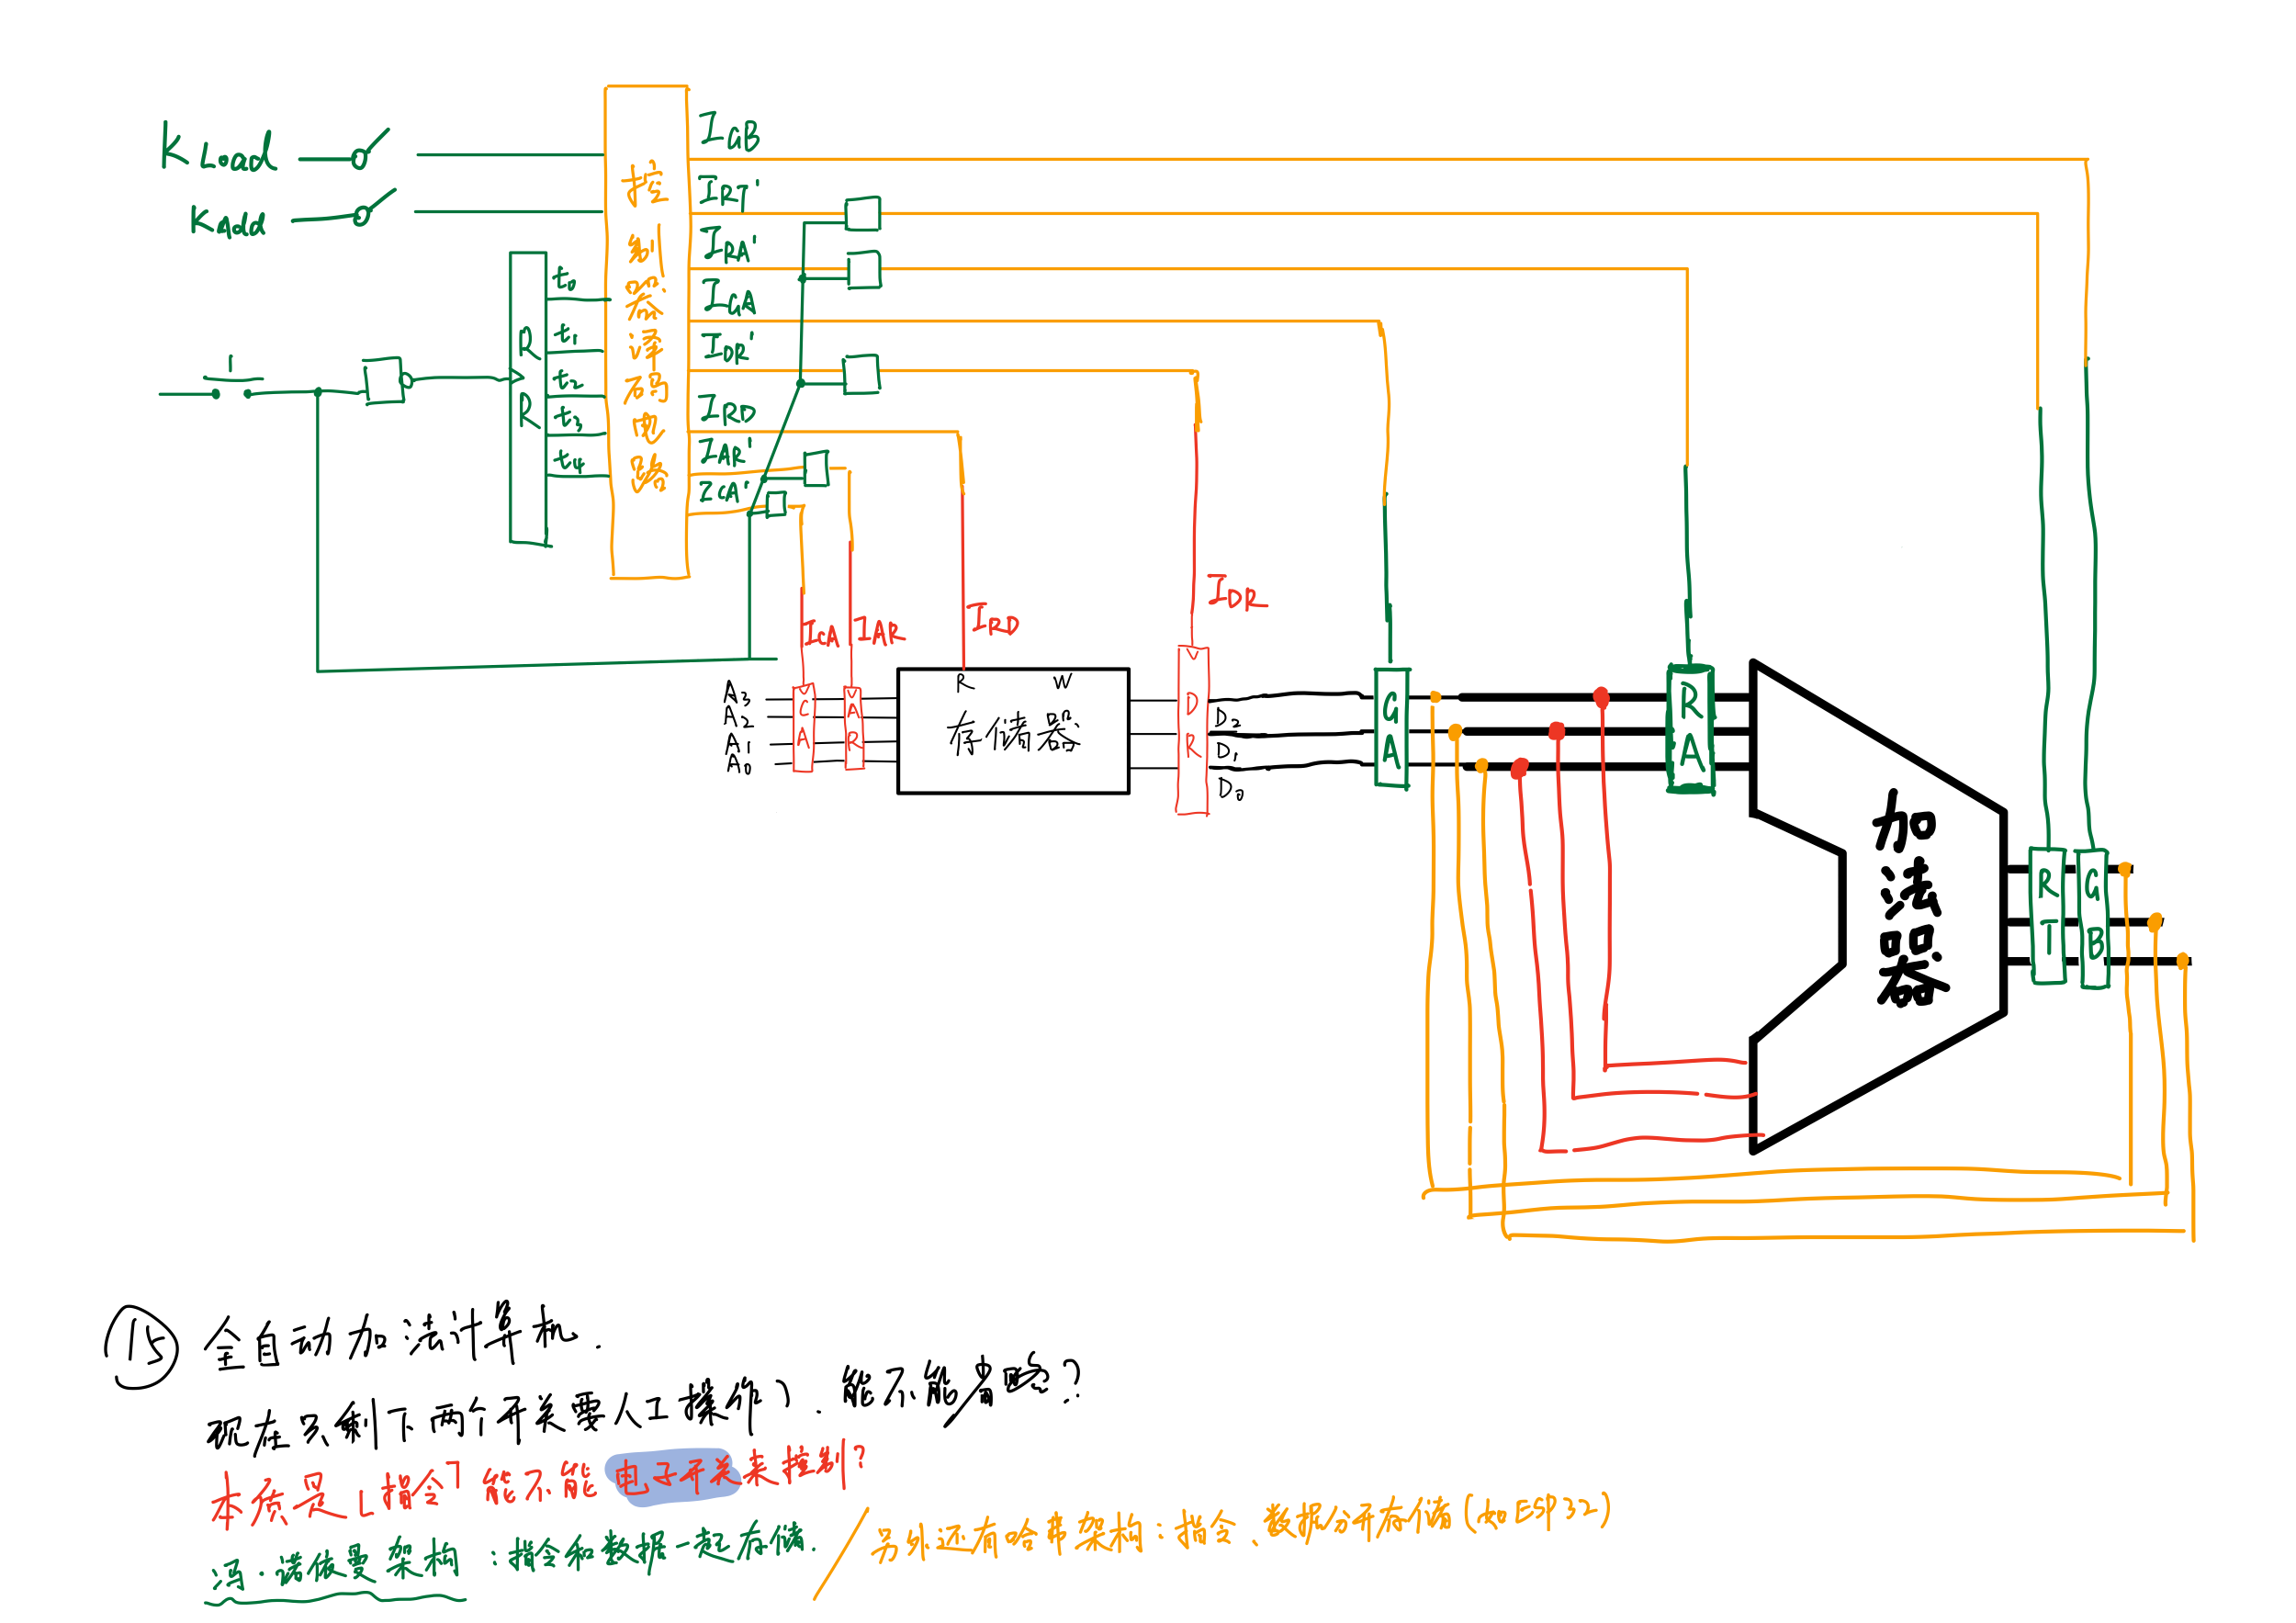 KLoad
KAdd
1
RR
t0
t1
t2
t3
t4
控制器译码电路
IGB
IRT'
IRA'
IGA
IDR'
IRD
IAR'
ICA'
ICA
IAR
IRD
IDR
A3
A2
A1
A0
CA
AR
R W
存储器
DR
D2
D1
D0
GA
RA
加法器
RT
GB
⑮ 全自动加法计算机.
现在只剩下两个开关要人工操作).能不能省略?
本质是「指令」能不能电子开关来控制?
冯·诺依曼架构:指令和数据一起存储. / 另外还有哈佛架构:指令、数据分开存储(如ESP32)